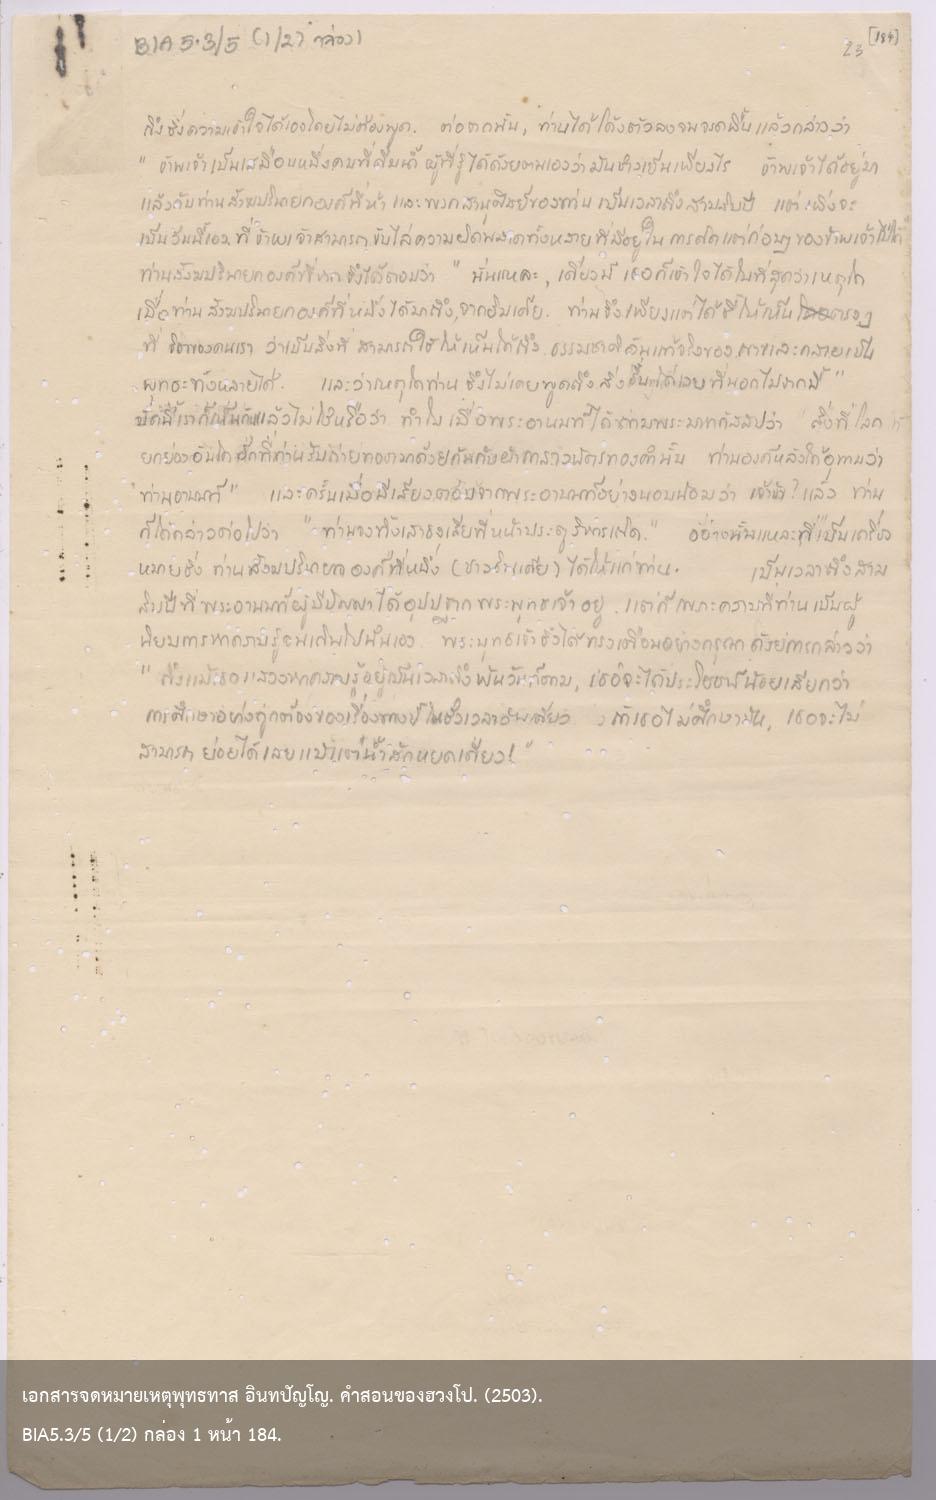 BIA 5.3/5 (1/2) กล่อง 1
23 [184]
ถึงซึ่งความเข้าใจได้เองโดยไม่ต้องพูด. ต่อจากนั้น, ท่านได้โค้งตัวลงจนจรดพื้นแล้วกล่าวว่า
" ข้าพเจ้าเป็นเสมือนหนึ่งคนที่ดื่มน้ำ ผู้ที่รู้ได้ด้วยตนเองว่ามันเย็นเพียงไร ข้าพเจ้าได้อยู่มา
แล้วกับท่านสังฆปริณายกองค์ที่ห้า และพวกสานุศิษย์ของท่าน เป็นเวลาถึงสามสิบปี แต่เพิ่งจะ
เป็นวันนี้เอง ที่ข้าพเจ้าสามารถขับไล่ความผิดพลาดทั้งหลายที่มีอยู่ใน การคิดแต่ก่อนๆ ของข้าพเจ้าไปได้"
ท่านสังฆปริณายกองค์ที่หก จึงได้ตอบว่า " นั่นแหละ, เดี๋ยวนี้ เธอก็เข้าใจได้ในที่สุดว่าเหตุใด
เมื่อท่านสังฆปริณายกองค์ที่หนึ่งได้มาถึง, จากอินเดีย. ท่านจึงเพียงแต่ได้ชี้ให้เห็น ตรงๆ
ที่ จิตของคนเรา ว่าเป็นสิ่งที่ สามารถใช้ให้เห็นได้ถึง ธรรมชาติอันแท้จริงของ และกลายเป็น
พุทธะทั้งหลายได้. และว่าเหตุใดท่าน จึงไม่เคยพูดถึง สิ่งอื่นใดเลย ที่นอกไปจากนี้ "
แล้วไม่ใช่หรือว่า ทำไม เมื่อพระอานนท์ได้ถามพระมหากัสสปว่า สิ่งที่โลก
ยกย่องอันใดอีกที่ท่านรับถ่ายทอดมาด้วยกันกับ ท่านองค์หลังได้อุทานว่า
"ท่านอานนท์" และครั้นเมื่อมีเสียงตอบจากพระอานนท์อย่างนอบน้อมว่า ? แล้ว ท่าน
ก็ได้กล่าวต่อไปว่า " ท่านจงทิ้งเสาธงเสียที่หน้าประตูวิหารเถิด." อย่างนั้นแหละที่เป็นเครื่อง
หมายซึ่ง ท่านสังฆปริณายก องค์ที่หนึ่ง (ชาวอินเดีย) ได้ให้แก่ท่าน. เป็นเวลาถึงสาม
สิบปีที่พระอานนท์ผู้มีปัญญาได้อุปฐากพระพุทธเจ้าอยู่. แต่ก็เพราะความที่ท่านเป็นผู้
นิยมการหาความรู้จนเกินไปนั่นเอง พระพุทธเจ้าจึงได้ทรงเตือนอย่างกรุณา ด้วยการกล่าวว่า
" ถึงแม้เธอแสวงหาความรู้อยู่เป็นเวลาถึงพันวันก็ตาม, เธอจะได้ประโยชน์น้อยเสียกว่า
การศึกษาอย่างถูกต้องของเรื่องทางนี้ในชั่วเวลาวันเดียว ถ้าเธอไม่ศึกษามัน, เธอจะไม่
สามารถ ย่อยได้เลย แม้แต่น้ำสักหยดเดียว! "
เอกสารจดหมายเหตุพุทธทาส อินทปัญโญ. คำสอนของฮวงโป. (2503).
BIA5.3/5 (1/2) กล่อง 1 หน้า 184.